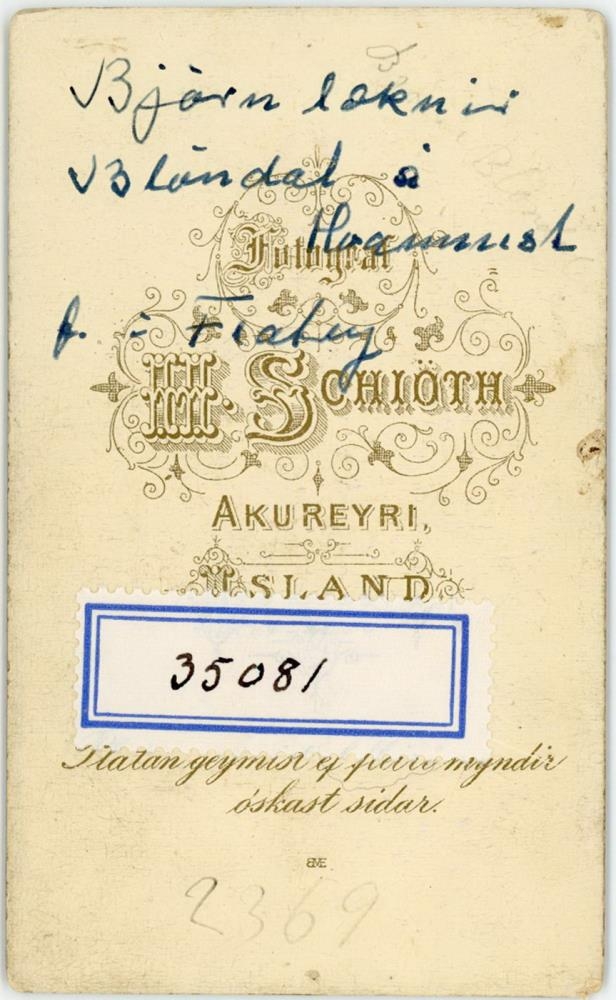 Björn læknir
Blöndal á
Hvammst
f. í Flatey
Fotograf
H. SCHIÖTH
AKUREYRI,
ÍSLAND
35081
Platan geymist ef fleiri myndir
óskast síðar.
2369